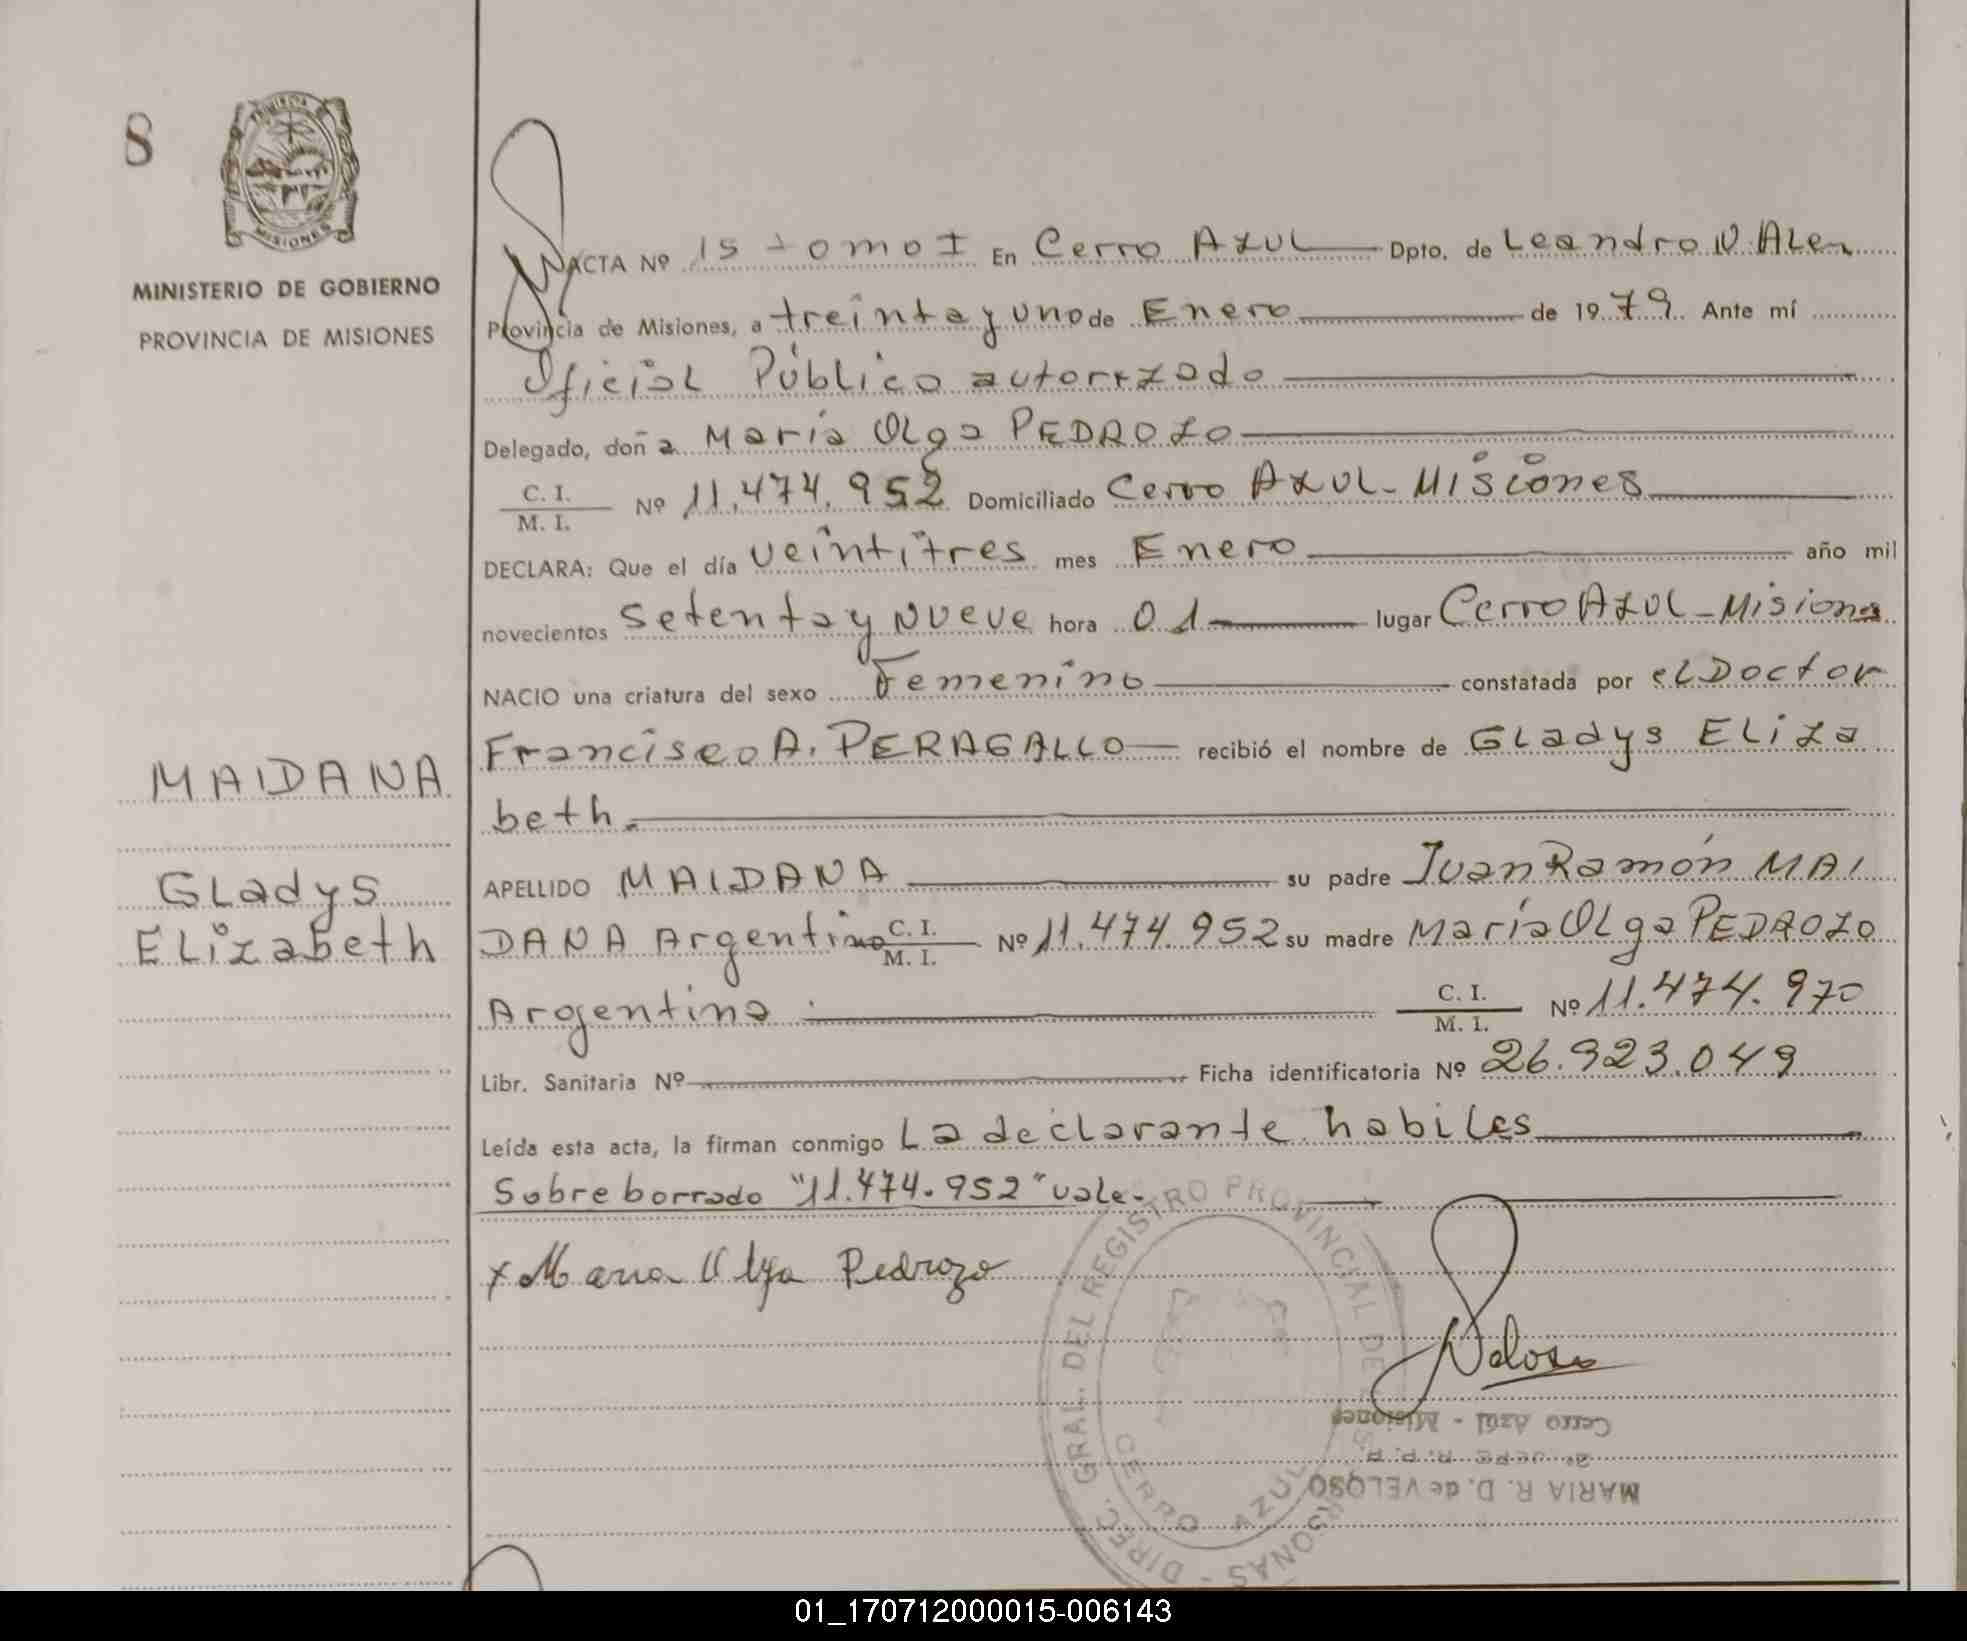 8
PROVINCIA
MISIONES
MINISTERIO DE GOBIERNO
PROVINCIA DE MISIONES
MAIDANA
Gladys
Elizabeth
ACTA Nº 15 tomo I En Cerro Azul Dpto. de Leandro N. Alem
Provincia de Misiones, a treinta y uno de Enero de 1979. Ante mí
Oficial Público autorizado
Delegado, doña María Olga PEDROZO
C. I.
M. I. Nº 11.474.952 Domiciliado Cerro Azul - Misiones
DECLARA: Que el día veintitres mes Enero año mil
novecientos setenta y nueve hora 01 lugar Cerro Azul - Misiones
NACIO una criatura del sexo Femenino constatada por el Doctor
Francisco A. PERAGALLO recibió el nombre de Gladys Eliza
beth.
APELLIDO MAIDANA su padre Juan Ramón MAI
DANA Argentino C. I.
M. I. Nº 11.474.952 su madre María Olga PEDROZO
Argentina. C. I.
M. I. Nº 11.474.970
Libr. Sanitaria Nº Ficha identificatoria Nº 26.923.049
Leída esta acta, la firman conmigo La declarante habiles
Sobre borrado "11.474.952" vale.
x Maria Olga Pedrozo
Veloso
DIREC. GRAL. DEL REGISTRO PROVINCIAL DE LAS PERSONAS -
CERRO AZUL
MARIA R. D. de VELOSO
2º JEFE R. P. P.
Cerro Azul - Misiones
01_170712000015-006143